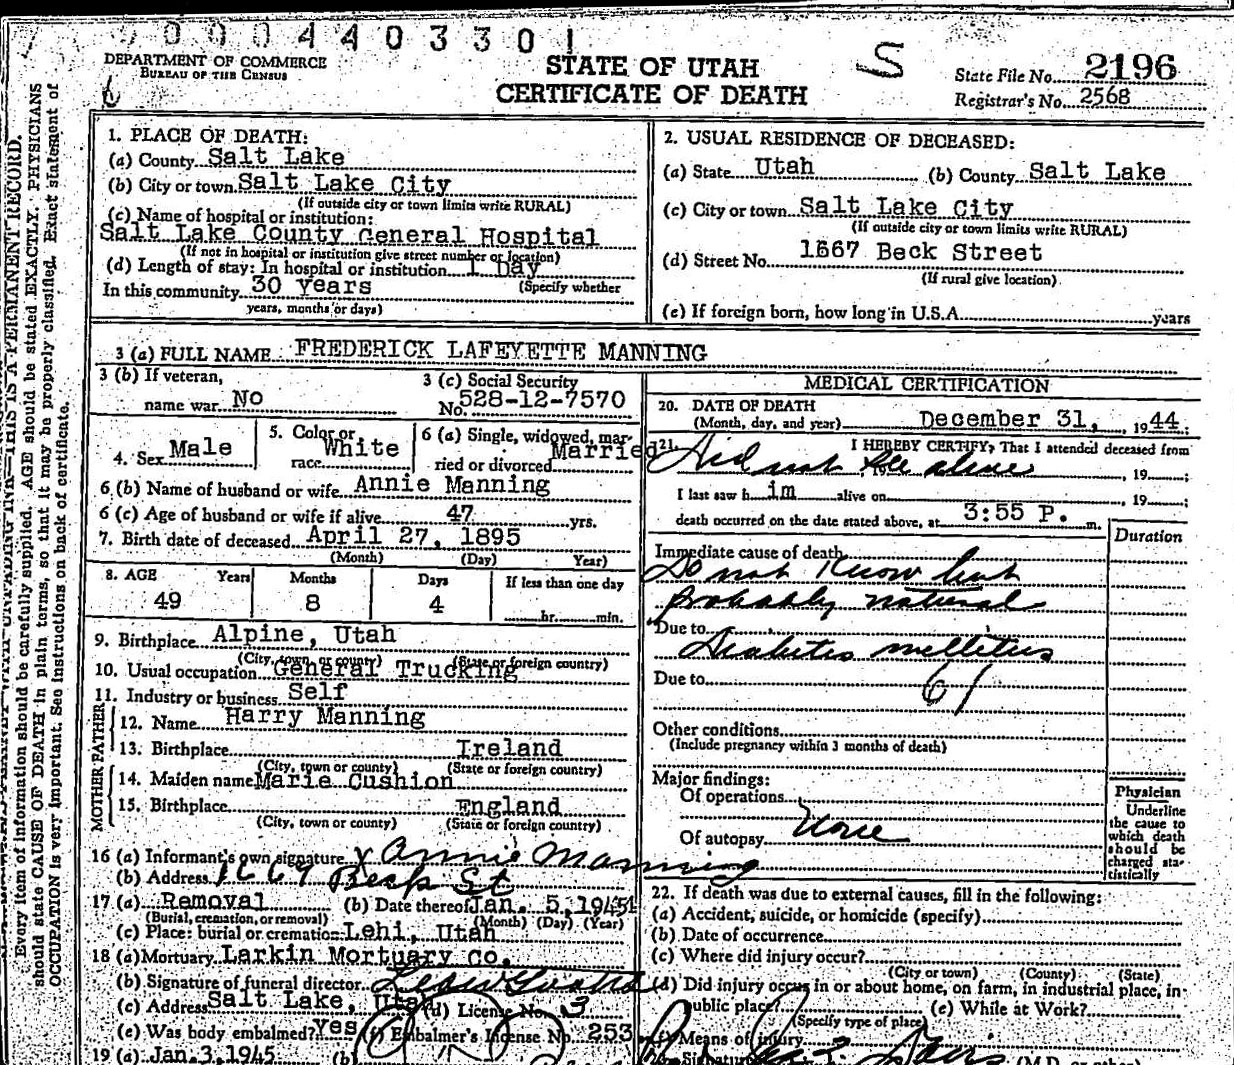 0004403301
DEPARTMENT OF COMMERCE
BUREAU OF THE CENSUS
STATE OF UTAH
CERTIFICATE OF DEATH
S
State File No. 2196
Registrar's No. 2568
6
Every item of information should be carefully supplied. AGE should be stated EXACTLY. PHYSICIANS
should state CAUSE OF DEATH in plain terms, so that it may be properly classified. Exact statement of
OCCUPATION is very important. See instructions on back of certificate.
THIS IS A PERMANENT RECORD.
1. PLACE OF DEATH:
(a) County Salt Lake
(b) City or town Salt Lake City
(If outside city or town limits write RURAL)
(c) Name of hospital or institution:
Salt Lake County General Hospital
(If not in hospital or institution give street number or location)
(d) Length of stay: In hospital or institution 1 Day
In this community 30 years (Specify whether
years, months or days)
2. USUAL RESIDENCE OF DECEASED:
(a) State Utah (b) County Salt Lake
(c) City or town Salt Lake City
(If outside city or town limits write RURAL)
(d) Street No. 1667 Beck Street
(If rural give location)
(e) If foreign born, how long in U.S.A. years
3 (a) FULL NAME FREDERICK LAFEYETTE MANNING
3 (b) If veteran,
name war No
3 (c) Social Security
No. 528-12-7570
4. Sex Male
5. Color or
race White
6 (a) Single, widowed, mar-
ried or divorced Married
6 (b) Name of husband or wife Annie Manning
6 (c) Age of husband or wife if alive 47 yrs.
7. Birth date of deceased April 27, 1895
(Month) (Day) Year)
8. AGE Years Months Days If less than one day
49 8 4 hr. min.
9. Birthplace Alpine, Utah
(City, town or county) (State or foreign country)
10. Usual occupation General Trucking
11. Industry or business Self
FATHER
12. Name Harry Manning
13. Birthplace Ireland
(City, town or county) (State or foreign country)
MOTHER
14. Maiden name Marie Cushion
15. Birthplace England
(City, town or county) (State or foreign country)
16 (a) Informant's own signature x Annie Manning
(b) Address 1669 Beck St
17 (a) Removal (b) Date thereof Jan. 5, 1945
(Burial, cremation, or removal) (Month) (Day) (Year)
(c) Place: burial or cremation Lehi, Utah
18 (a) Mortuary Larkin Mortuary Co.
(b) Signature of funeral director
(c) Address Salt Lake, Utah (d) License No. 3
(e) Was body embalmed? Yes (f) Embalmer's License No. 253
19 (a) Jan. 3, 1945 (b)
MEDICAL CERTIFICATION
20. DATE OF DEATH
(Month, day, and year) December 31, 1944
21. I HEREBY CERTIFY, That I attended deceased from
Did not see alive , 19 ;
I last saw h im alive on , 19 ;
death occurred on the date stated above, at 3:55 P. m.
Duration
Immediate cause of death
Do not know but
probably natural
Due to
Diabetes mellitus
Due to 61
Other conditions
(Include pregnancy within 3 months of death)
Major findings:
Of operations
Of autopsy None
Physician
Underline
the cause to
which death
should be
charged sta-
tistically
22. If death was due to external causes, fill in the following:
(a) Accident, suicide, or homicide (specify)
(b) Date of occurrence
(c) Where did injury occur?
(City or town) (County) (State)
(d) Did injury occur in or about home, on farm, in industrial place, in
public place? (e) While at Work?
(Specify type of place)
(f) Means of injury
Signature